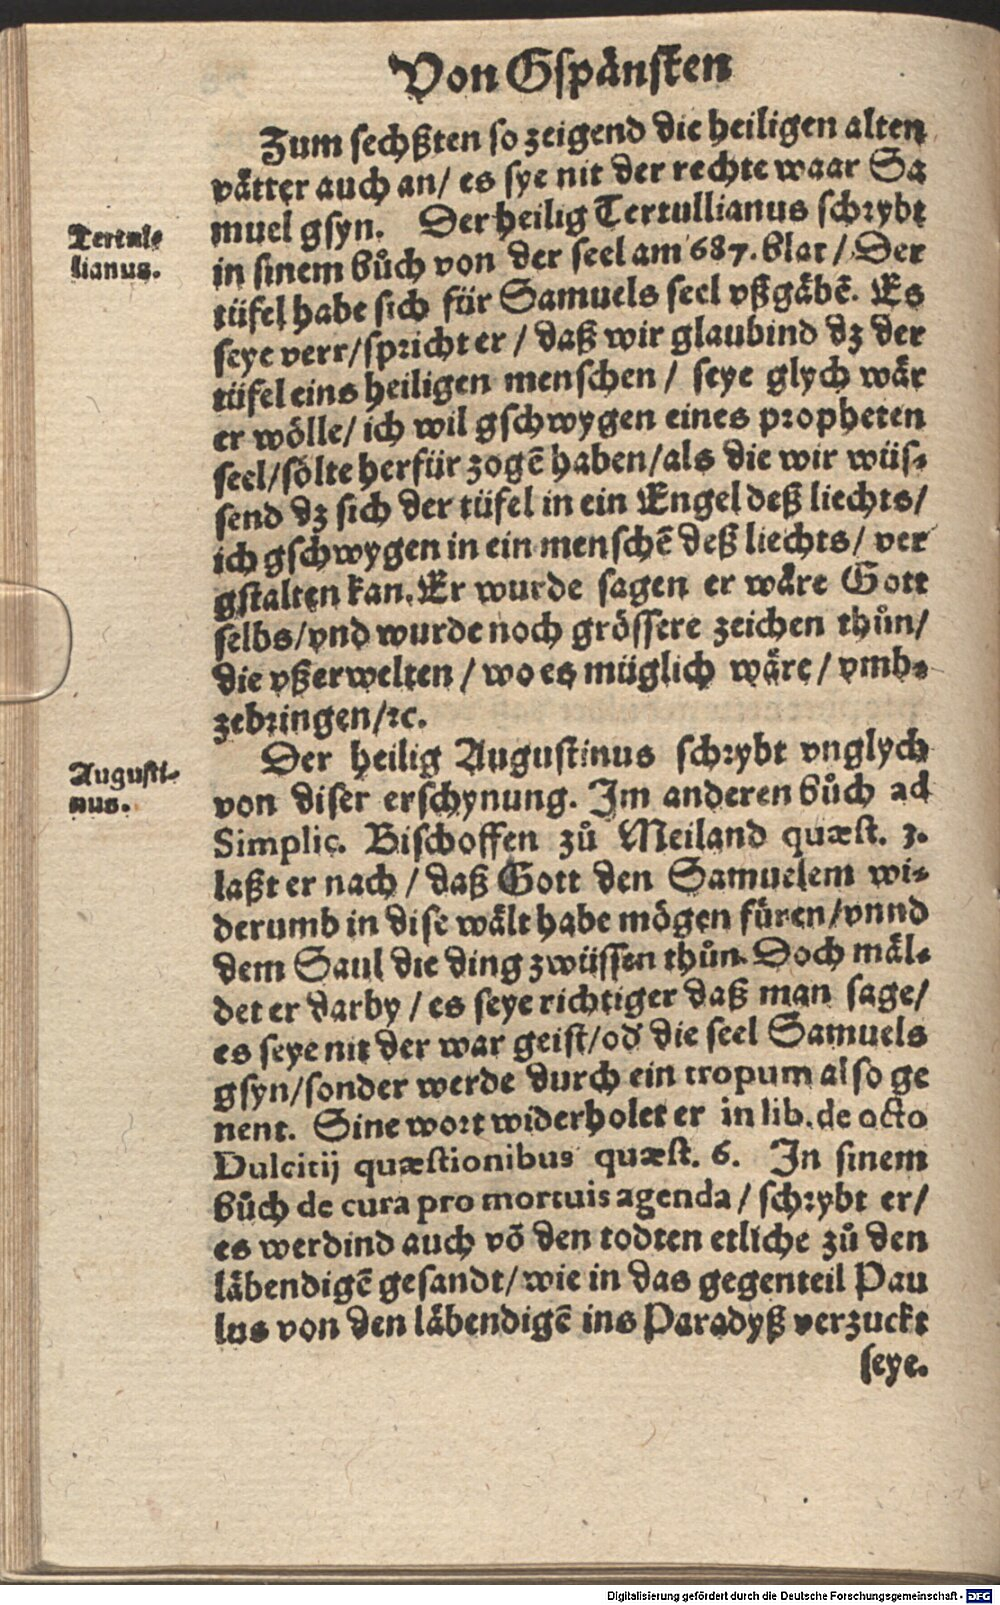 Von Gspänsten
Zum sechßten so zeigend die heiligen alten
vätter auch an/ es sye nit der rechte waar Sa
muel gsyn. Der heilig Tertullianus schrybt
Tertul-
lianus.
in sinem bůch von der seel am 687. blat/ Der
tüfel habe sich für Samuels seel vßgäbē. Es
seye verr/ spricht er/ daß wir glaubind dz der
tüfel eins heiligen menschen/ seye glych wär
er wölle/ ich wil gschwygen eines propheten
seel/ sölte herfür zogē haben/ als die wir wüs-
send dz sich der tüfel in ein Engel deß liechts/
ich gschwygen in ein menschē deß liechts/ ver
gstalten kan. Er wurde sagen er wäre Gott
selbs/ vnd wurde noch grössere zeichen thůn/
die vßerwelten/ wo es müglich wäre/ vmb-
zebringen/ ꝛc.
Der heilig Augustinus schrybt vnglych
Augusti-
nus.
von diser erschynung. Im anderen bůch ad
Simplic. Bischoffen zů Meiland quæst. 3.
laßt er nach/ daß Gott den Samuelem wi-
derumb in dise wält habe mögen füren/ vnnd
dem Saul die ding zwüssen thůn. Doch mäl-
det er darby/ es seye richtiger daß man sage/
es seye nit der war geist/ od' die seel Samuels
gsyn/ sonder werde durch ein tropum also ge
nent. Sine wort widerholet er in lib. de octo
Dulcitij quæstionibus quæst. 6. In sinem
bůch de cura pro mortuis agenda/ schrybt er/
es werdind auch vō den todten etliche zů den
läbendigē gesandt/ wie in das gegenteil Pau
lus von den läbendigē ins Paradyß verzuckt
seye.
Digitalisierung gefördert durch die Deutsche Forschungsgemeinschaft - DFG